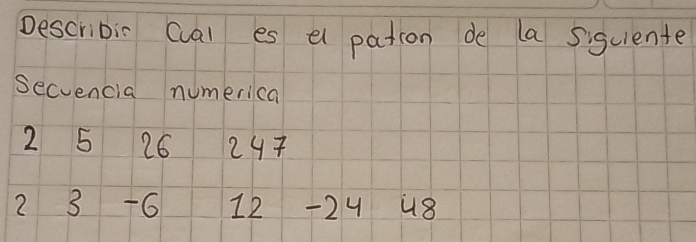 Describir Cual es el patron de la siguiente
Secuencia numerica
2 5 26 247
2 3 -6 12 -24 48